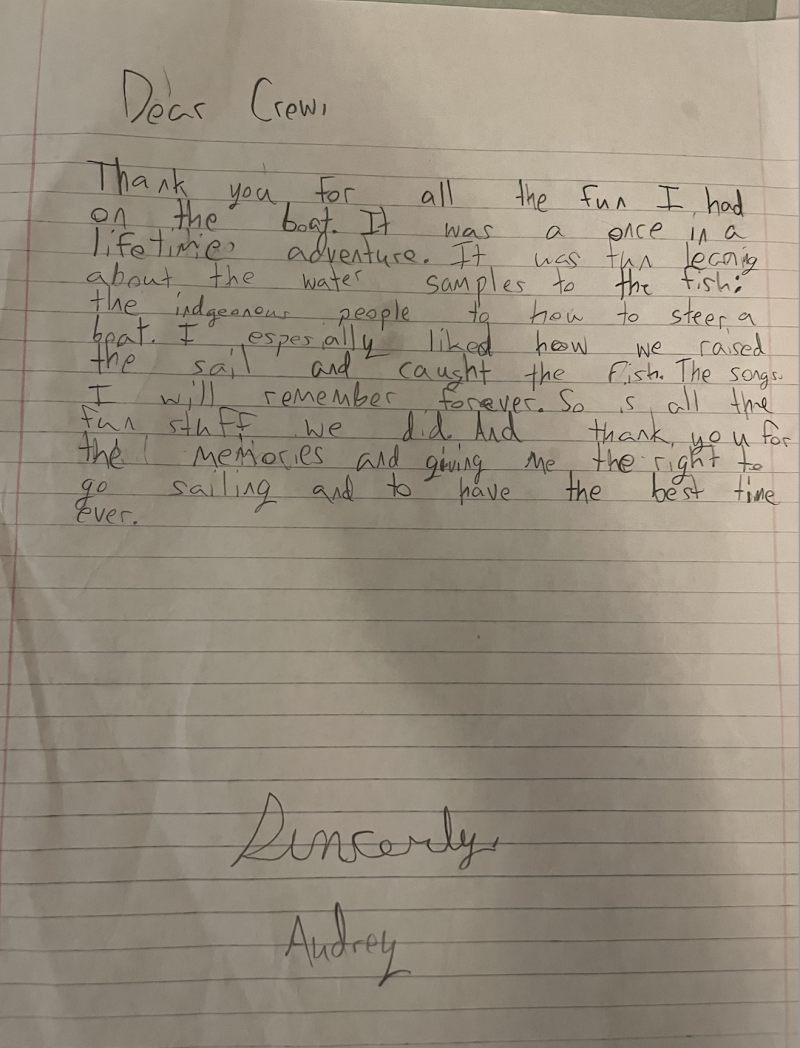 Dear Crew,
Thank you for all the fun I had
on the boat. It was a once in a
lifetime adventure. It was fun learnig
about the water samples to the fish;
the indgeenous people to how to steer a
boat. I espesially liked how we raised
the sail and caught the fish. The songs
I will remember forever. So is all the
fun stuff we did. And thank you for
the memories and giving me the right to
go sailing and to have the best time
ever.
Sincerly,
Audrey